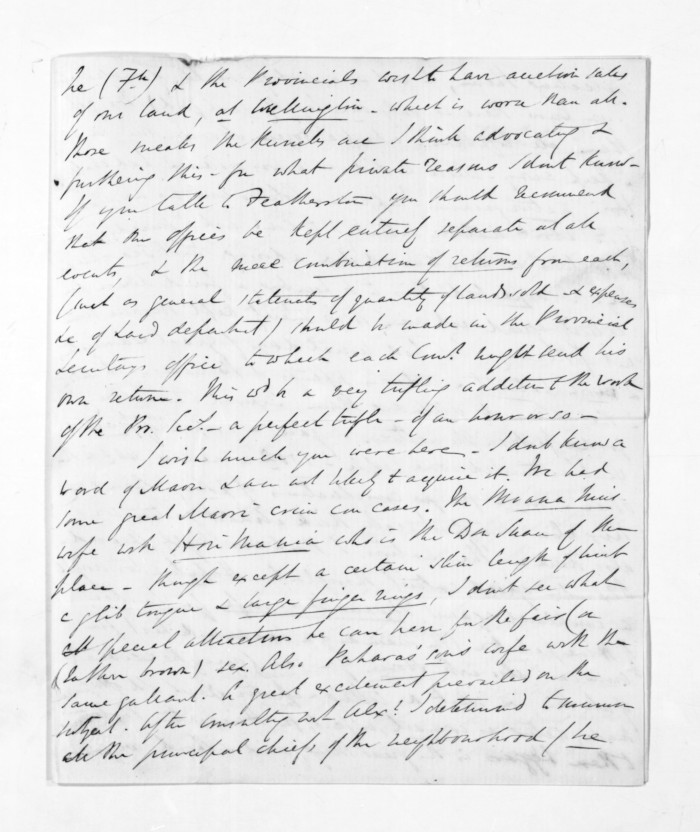 he (Fth) & the Provincials wish to have auction sales
of our land, at Wellington - which is worse than all.
Those sneaks the Kennels are I think advocating &
furthering this - for what private reasons I dont know -
If you talk to Featherston you should recommend
that the offices be kept entirely separate at all
events, & the mere combination of returns from each,
(such as general statements of quantity of lands sold & expenses
&c of Land department) should be made in the Provincial
Secretarys office to which each Comr. might send his
own return. This wd be a very trifling addition to the work
of the Pro. Sec. - a perfect trifle - of an hour or so -
I wish much you were here - I dont know a
word of Maori & am not likely to acquire it. We had
some great Maori crim con cases. The Moana
wife with Hori Mania who is the Don Juan of the
place - though except a certain slim length of
a glib tongue & large finger rings, I dont see what
special attractions he can have for the fair (or
(rather brown) sex. Also Paharas' son's wife with the
same gallant. A great excitement prevailed on the
subject. After consulting with Alexr. I determined to summon
all the principal chiefs of the neighbourhood (he